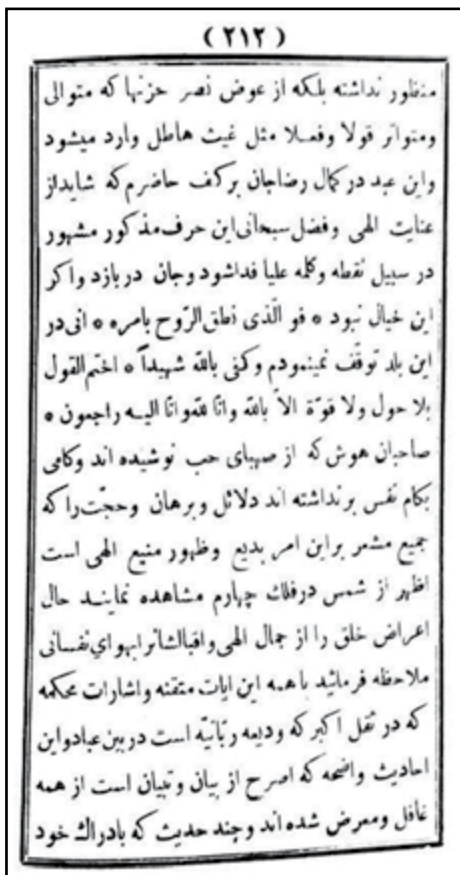 (٢١٢)
منظور نداشته بلکه از عوض نصر حزنها که متوالی
ومتواتر قولا وفعلا مثل غیث هاطل وارد میشود
واین عبد در کمال رضا جان بر کف حاضرم که شاید از
عنایت الهی وفضل سبحانی این حرف مذکور مشهور
در سبیل نقطه وکلمه علیا فدا شود وجان در بازد واکر
این خیال نبود * فو الّذی نطق الرّوح بامره * انی در
این بلد توقّف نمینمودم وکفی بالله شهیداً * اختم القول
بلا حول ولا قوّة الاّ بالله وانّا لله وانّا الیـه راجعون *
صاحبان هوش که از صهبای حب نوشیده اند وکامی
بکام نفس برنداشته اند دلائل وبرهان وحجّت را که
جمیع مشعر براین امر بدیع وظهور منیع الهی است
اظهر از شمس در فلك چهارم مشاهده نماینـد حال
اعراض خلق را از جمال الهی واقبالشانرا بهوای نفسانی
ملاحظه فرمائید با همه این ایات متقنه واشارات محکمه
که در ثقل اکبر که ودیعه ربّانیّه است در بین عباد واین
احادیث واضحه که اصرح از بیان وتبیان است از همه
غافل ومعرض شده اند وچند حدیث که بادراك خود